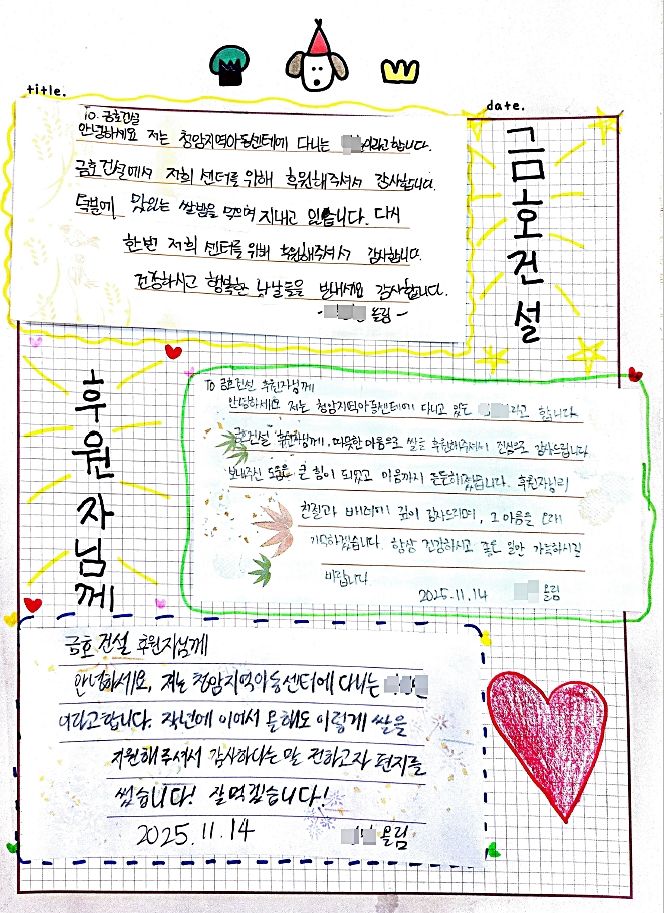 title.
date.
To. 금호건설
안녕하세요 저는 청암지역아동센터에 다니는 이라고합니다.
금호건설에서 저희 센터를 위해 후원해주셔서 감사합니다.
덕분에 맛있는 쌀밥을 먹으며 지내고 있습니다. 다시
한번 저희 센터를 위해 후원해주셔서 감사합니다.
건강하시고 행복한 나날들을 보내세요 감사합니다.
- 올림 -
금호건설
후원자님께
To 금호건설 후원자님께
안녕하세요 저는 청암지역아동센터에 다니고 있는 라고 합니다
금호건설 후원자님께, 따뜻한 마음으로 쌀을 후원해주셔서 진심으로 감사드립니다
보내주신 도움은 큰 힘이 되었고 마음까지 든든해졌습니다. 후원자님의
친절과 배려에 깊이 감사드리며, 그 마음을 오래
기억하겠습니다. 항상 건강하시고 좋은 일만 가득하시길
바랍니다
2025.11.14 올림
금호건설 후원자님께
안녕하세요, 저는 청암지역아동센터에 다니는
이라고합니다. 작년에 이어서 올해도 이렇게 쌀을
지원해주셔서 감사하다는 말 전하고자 편지를
썼습니다! 잘먹겠습니다!
2025.11.14 올림